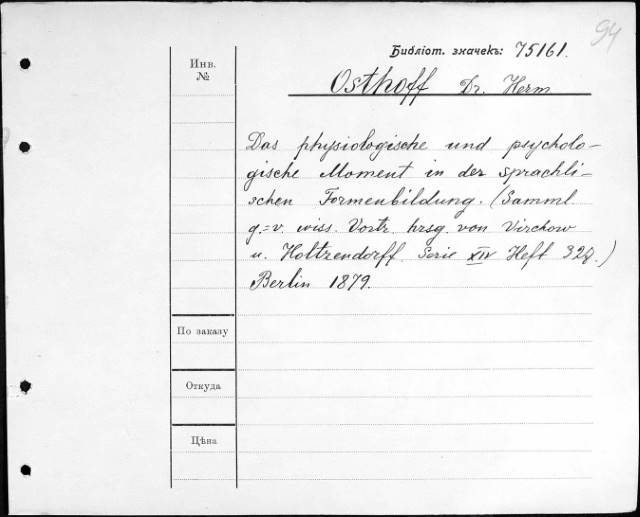 94
Библіот. значекъ: 75161.
Инв.
№
Osthoff Dr. Herm
Das physiologische und psycholo-
gische Moment in der sprachli-
schen Formenbildung. (Samml
g.=v. wiss. Vortr. hrsg. von Virchow
u. Holtzendorff. Serie XIV Heft 327.)
Berlin 1879.
По заказу
Откуда
Цѣна